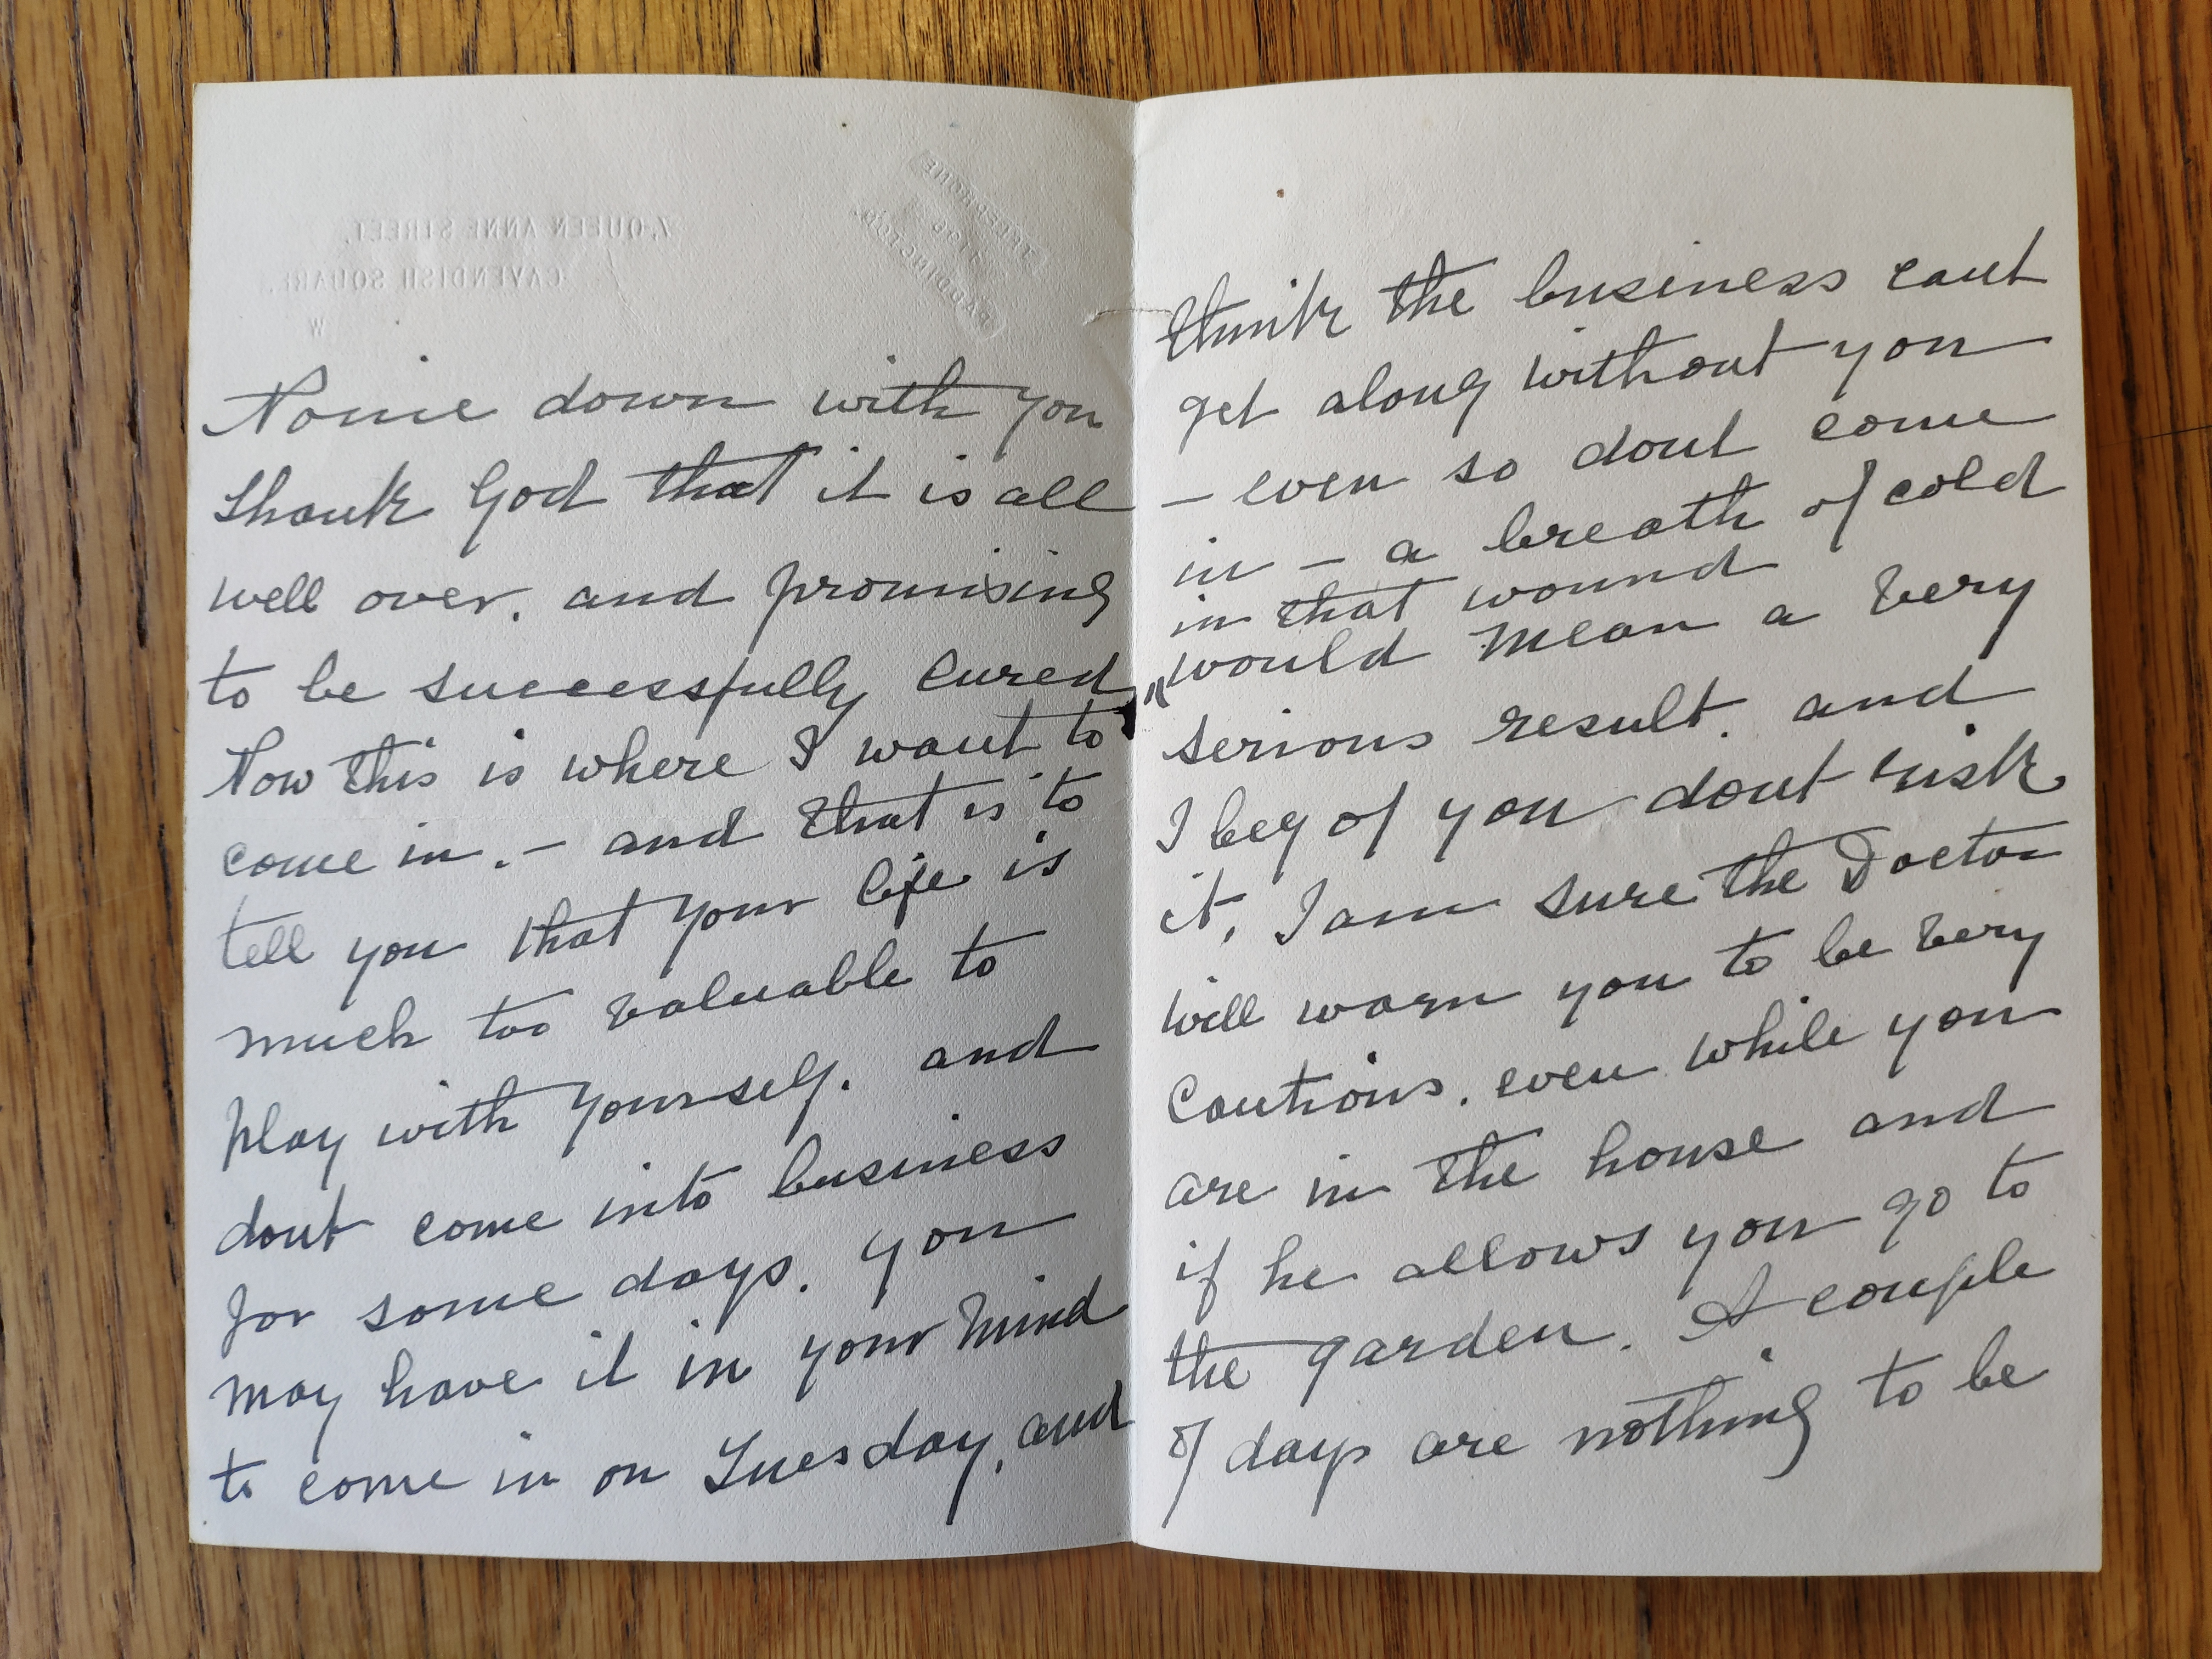 7, QUEEN ANNE STREET,
CAVENDISH SQUARE,
W
TELEPHONE
PADDINGTON
Nomie down with you
thank God that it is all
well over. and promising
to be successfully cured
Now this is where I want to
come in. - and that is to
tell you that your life is
much too valuable to
play with yourself. and
dont come into business
for some days. you
may have it in your mind
to come in on Tuesday, and
think the business cant
get along without you
- even so dont come
in - a breath of cold
in that wound
"would mean a very
serious result. and
I beg of you dont risk
it, I am sure the Doctor
will warn you to be very
Cautious. even while you
are in the house and
if he allows you go to
the garden. A couple
of days are nothing to be